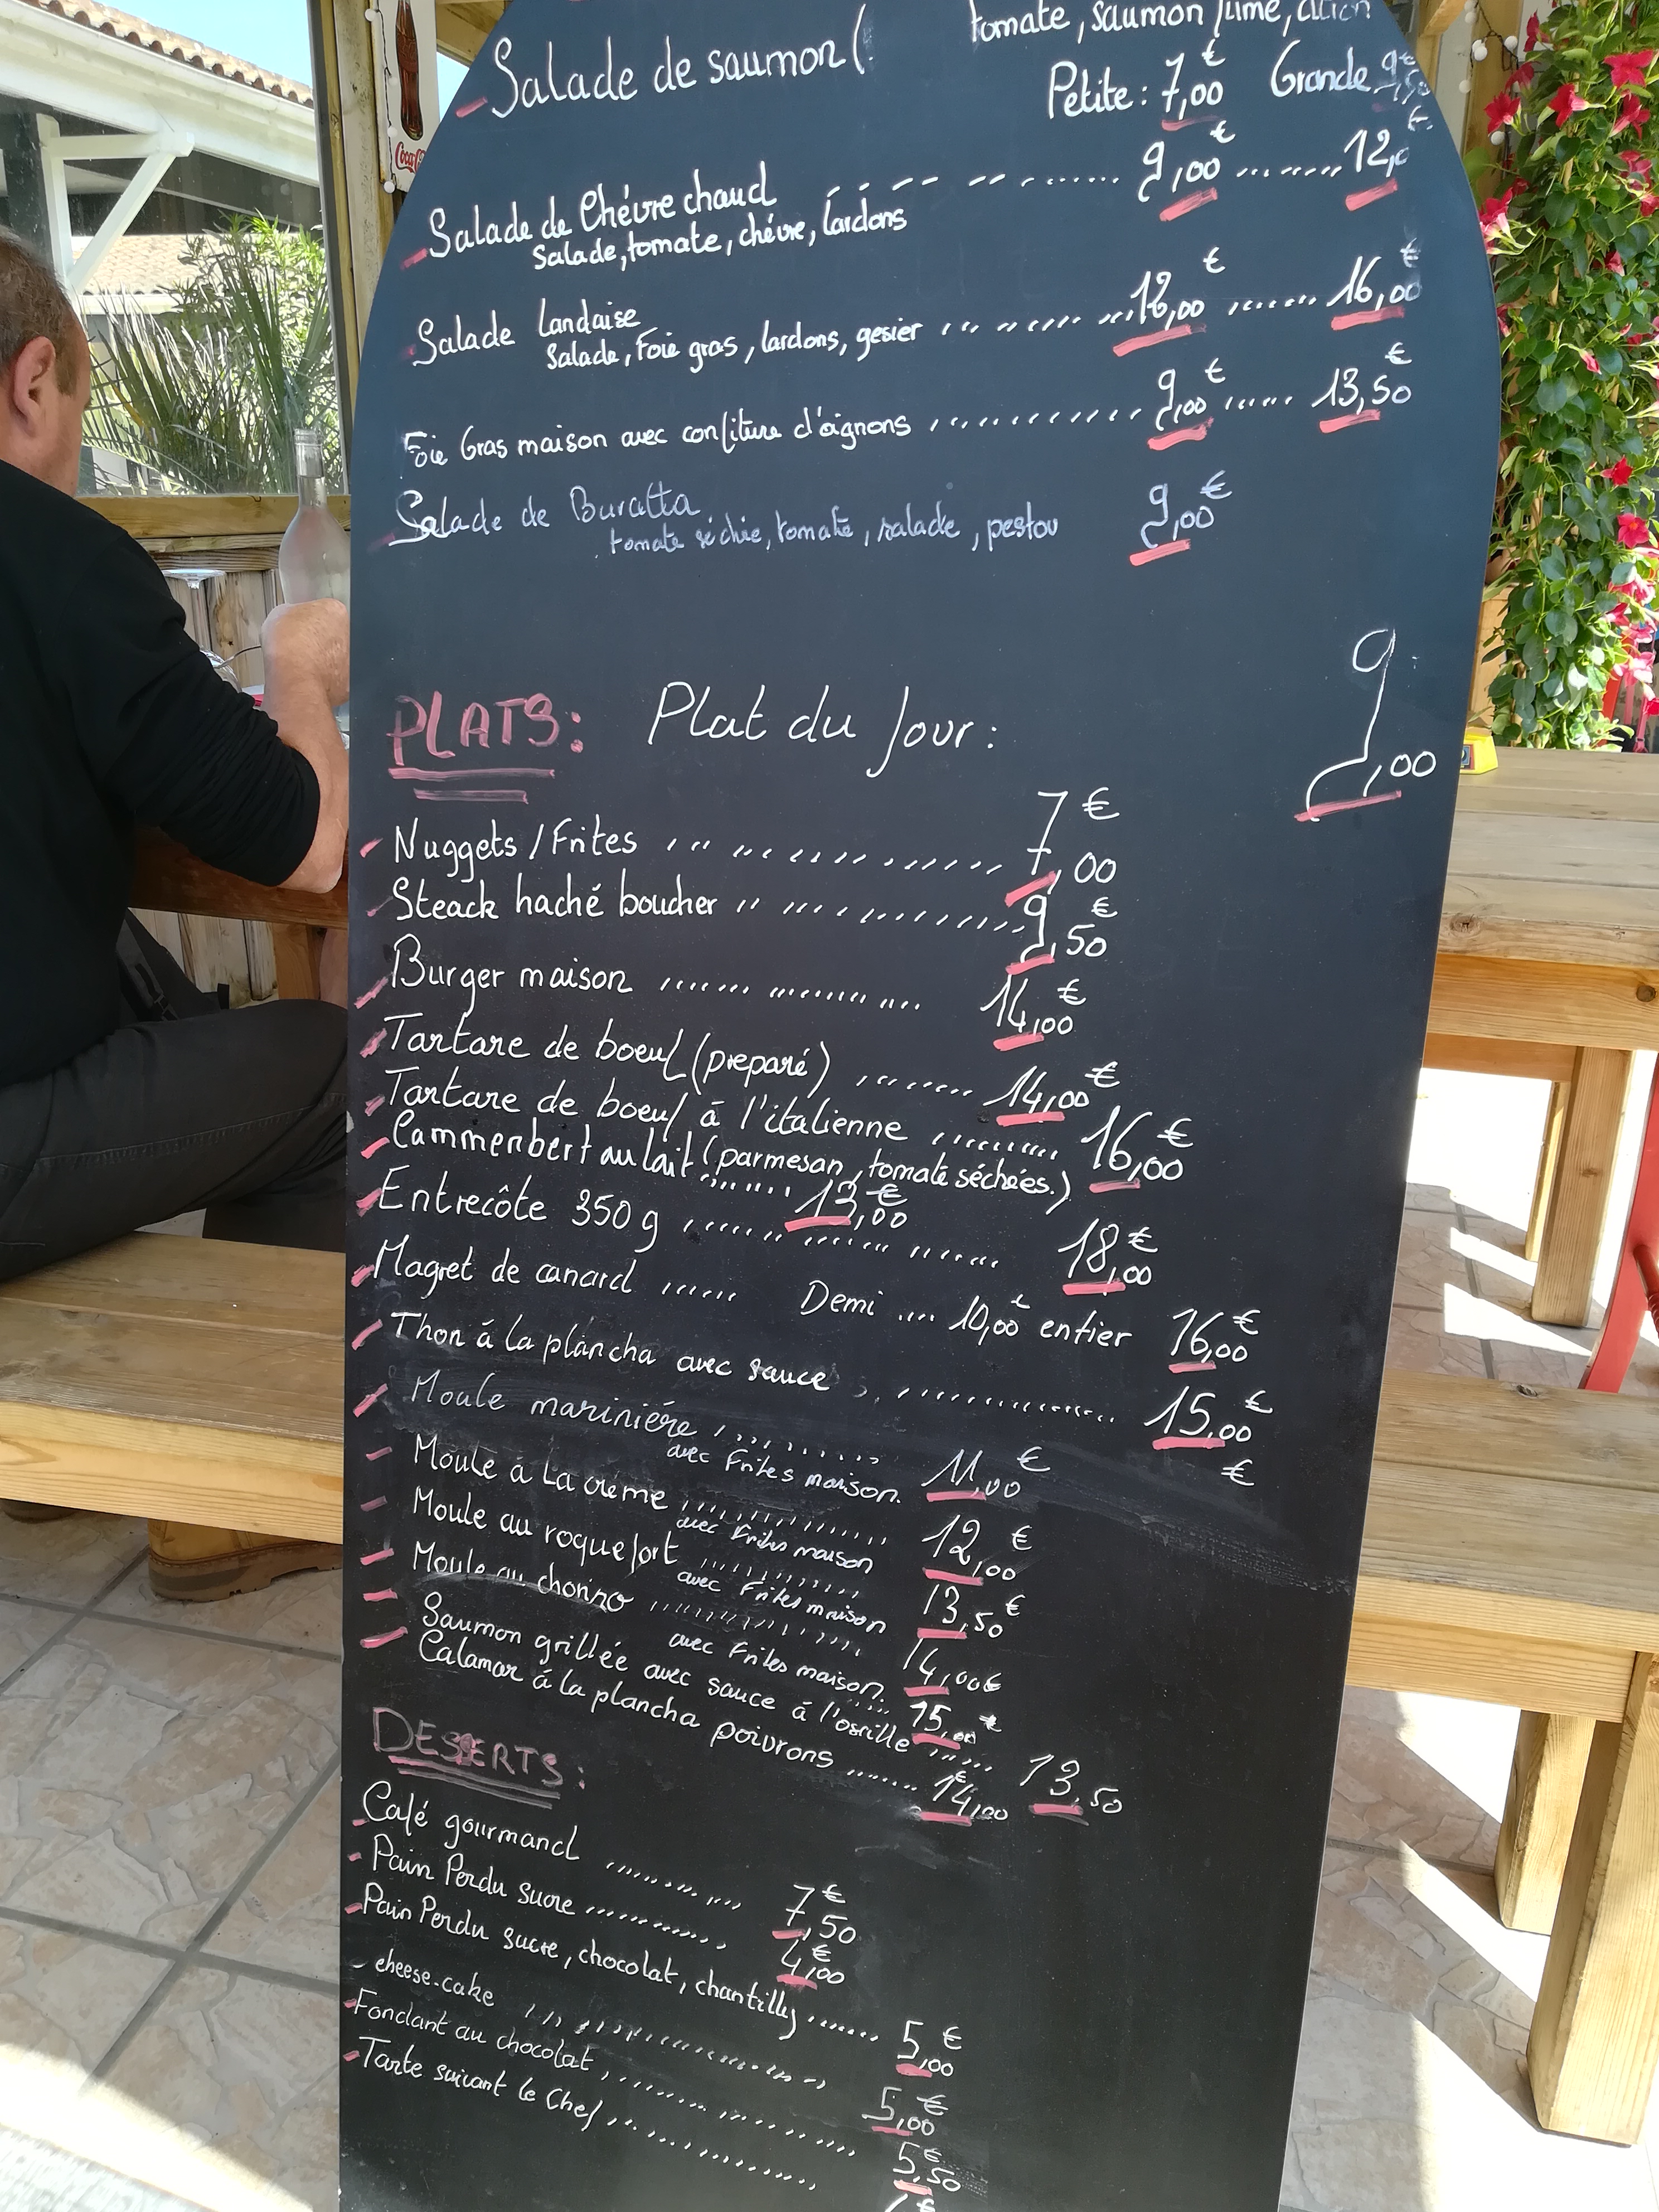 Coca-Cola
tomate, saumon fumé, citron
Salade de saumon (
Petite : 7,00 € Grande 9,50 €
Salade de Chévre chaud ........ 9,00 € ........ 12,0 €
Salade, tomate, chévre, lardons
Salade Landaise
Salade, Foie gras, lardons, gesier ........ 12,00 € ....... 16,00 €
Foie Gras maison avec confiture d'oignons ............ 9,00 € ...... 13,50 €
Salade de Buratta 9,00 €
tomate séchie, tomate, salade, pestou
PLATS : Plat du Jour : 9,00
Nuggets / Frites ............ 7,00 €
Steack haché boucher ............ 9,50 €
Burger maison ............ 14,00 €
Tartare de boeuf (preparé) ........ 14,00 €
Tartare de boeuf á l'italienne ......... 16,00 €
(parmesan, tomate séchées.)
Cammenbert au lait ....... 13,00 €
Entrecôte 350 g ............ 18,00 €
Magret de canard ...... Demi .... 10,00 € entier 16,00 €
Thon á la plancha avec sauce ............ 15,00 €
€
Moule mariniére ......... 11,00 €
avec Frites maison.
Moule à La crème ............ 12,00 €
avec Frites maison
Moule au roquefort ............ 13,50 €
avec Frites maison
Moule au chorizo ............ 14,00 €
avec Frites maison.
Saumon grillée avec sauce á l'oseille 15,00 €
...... 13,50
Calamar á la plancha poivrons ....... 14,00 €
DESSERTS :
Café gourmand ............ 7,50 €
Pain Perdu sucre ............ 4,00 €
Pain Perdu sucre, chocolat, chantilly ....... 5,00 €
cheese-cake ............ 5,00 €
Fondant au chocolat ............ 5,50 €
Tarte suivant le Chef ............ €